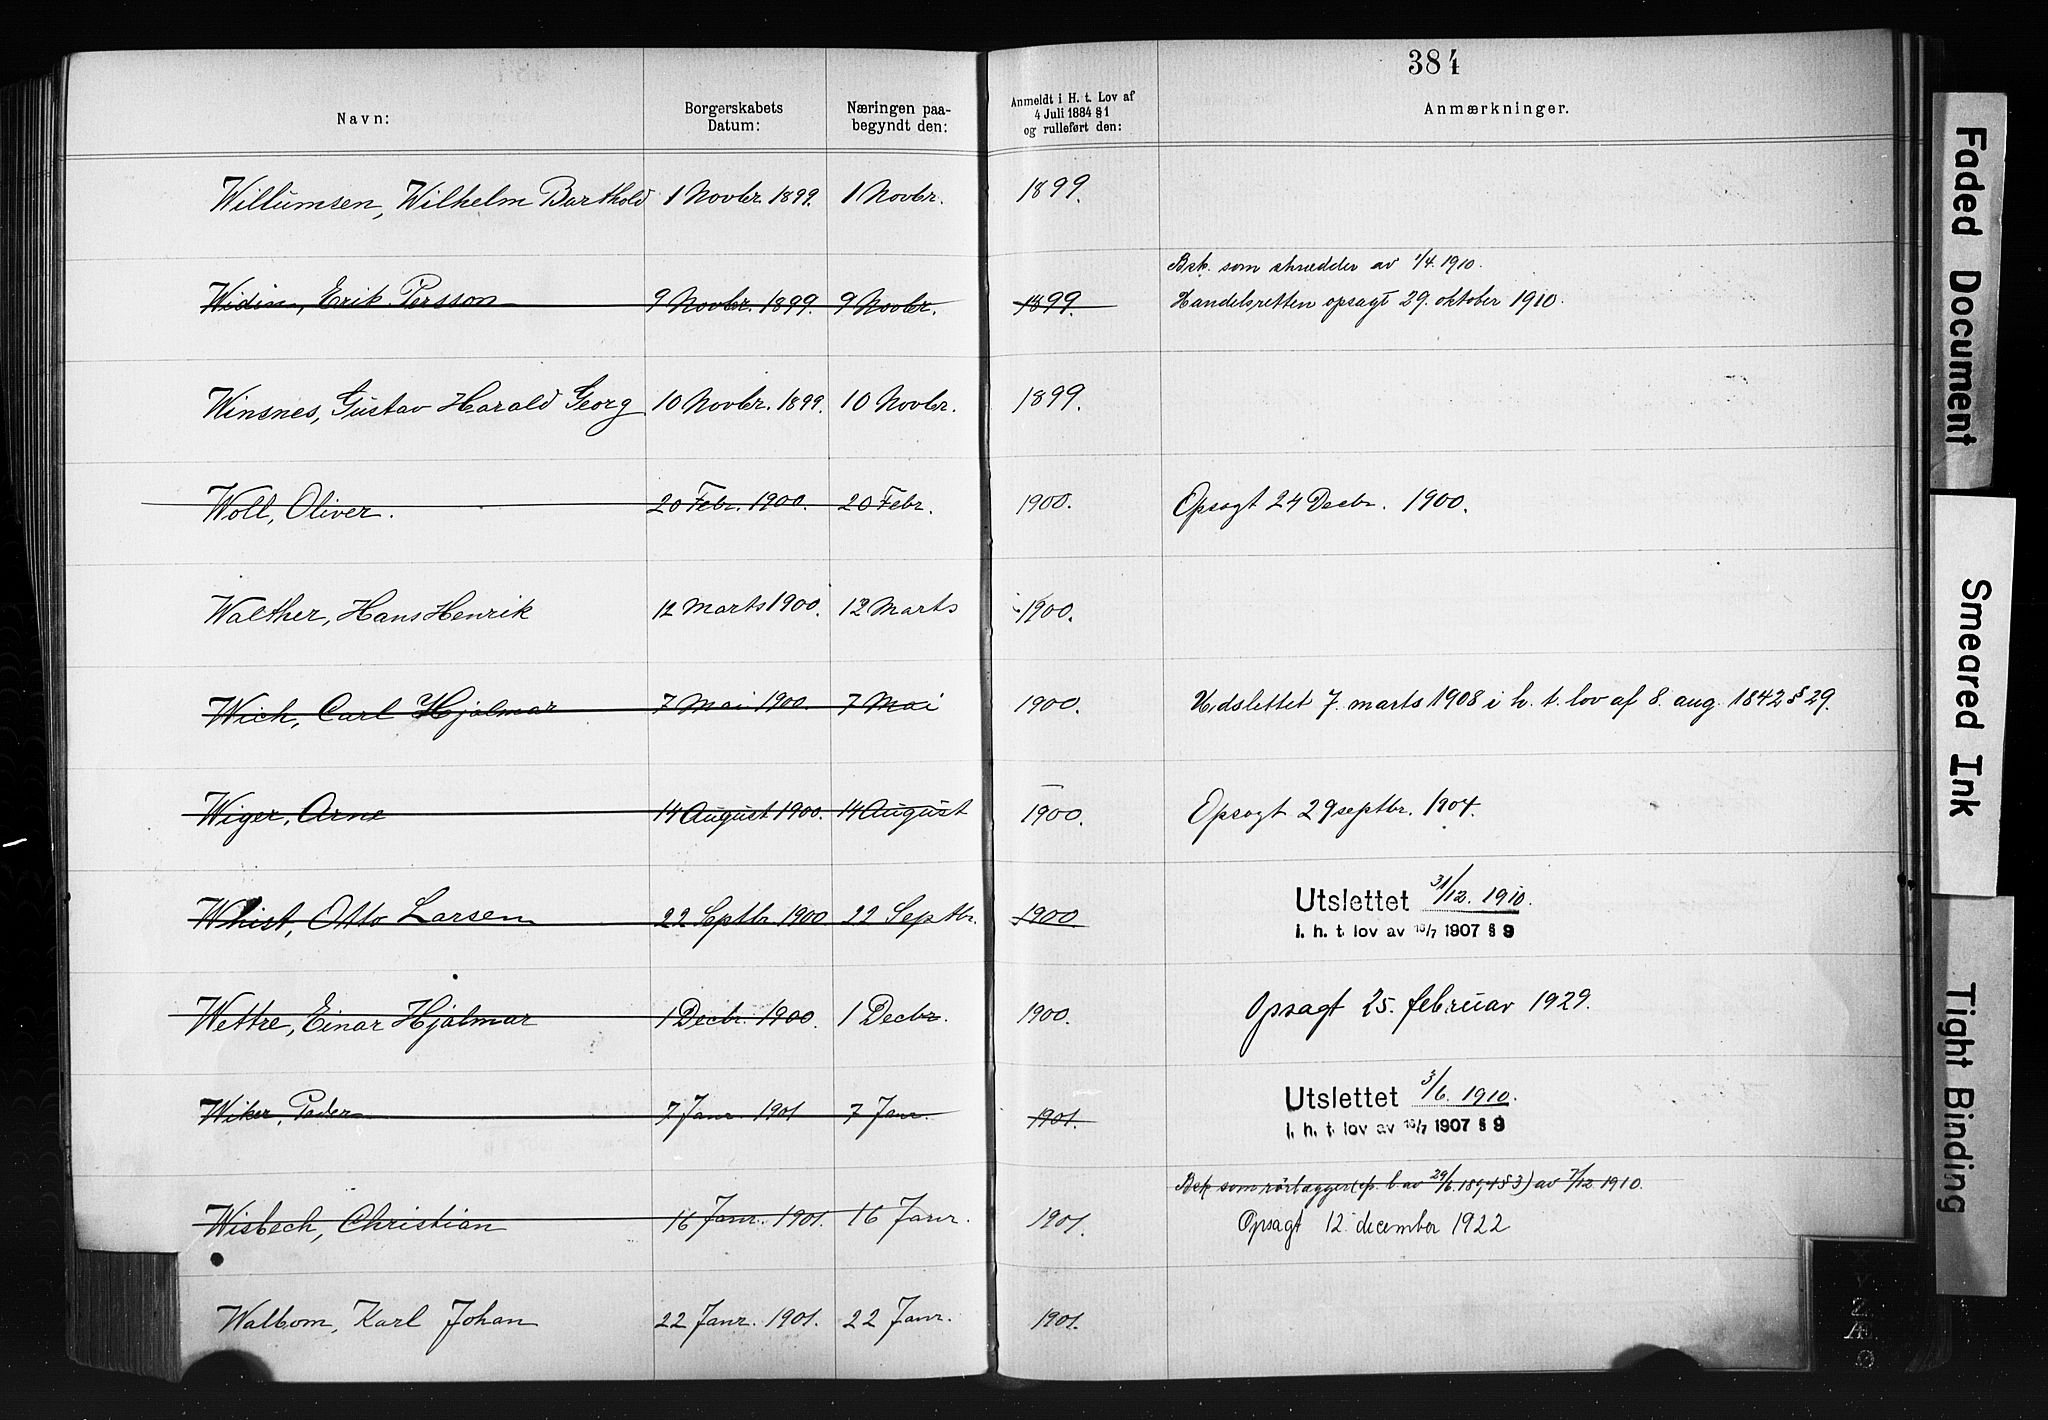 384
Navn: Borgerskabets Datum: Næringen paa-begyndt den: Anmeldt i H. t. Lov af 4 Juli 1884 § 1 og rulleført den: Anmærkninger.
Willumsen, Wilhelm Barthold 1 Novbr. 1899. 1 Novbr. 1899.
Bsk. som skrædder av 1/4. 1910.
Widin, Erik Persson 9 Novbr. 1899. 9 Novbr. 1899. Handelsretten opsagt 29. oktober 1910.
Winsnes, Gustav Harald Georg 10 Novbr. 1899. 10 Novbr. 1899.
Woll, Oliver. 20 Febr. 1900. 20 Febr. 1900. Opsagt 24 Decbr. 1900.
Walther, Hans Henrik 12 Marts 1900. 12 Marts 1900.
Wich, Carl Hjalmar 7 Mai 1900. 7 Mai 1900. Udslettet 7. marts 1908 i h. t. lov af 8. aug. 1842 § 29.
Wiger, Arne 14 August 1900. 14 August 1900. Opsagt 29 septbr. 1904.
Utslettet 31/12. 1910.
Whist, Otto Larsen 22 Septbr 1900. 22 Septbr. 1900 i. h. t. lov av 15/7 1907 § 9
Wettre, Einar Hjalmar 1 Decbr. 1900. 1 Decbr. 1900. Opsagt 25. februar 1929.
Utslettet 3/6. 1910.
Wiker, Peder 7 Janr. 1901 7 Janr. 1901. i. h. t. lov av 15/7 1907 § 9
Bsk som rørlægger (cp. l. av 29/6. 1894 § 3) av 7/12 1910.
Wisbech, Christian 16 Janr. 1901. 16 Janr. 1901. Opsagt 12. december 1922
Walbom, Karl Johan 22 Janr. 1901. 22 Janr. 1901.
Faded Document
Smeared Ink
Tight Binding